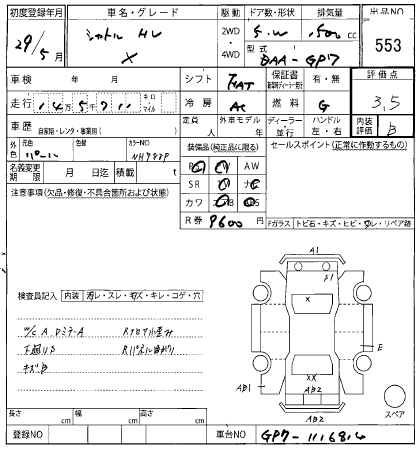 初度登録年月 車名・グレード 駆動 ドア数・形状 排気量 出品NO
29/5月 シャトル HV X 2WD ・ 4WD 5.W 1500 cc 553
型式 DAA-GP7
車検 年 月 シフト FAT 保証書 有・無 評価点
走行 14万5 キロ・マイル 冷房 AC 燃料 G 3,5
車歴 自家用・レンタ・事業用( ) 定員 人 外車モデル 年 ディーラー・並行 ハンドル 左・右 内装評価 B
外色 元色 パール 色替 カラーNO NH788P 装備品(純正品に限る) セールスポイント(正常に作動するもの)
名義変更期限 月 日迄 積載 t AW
注意事項(欠品・修復・不具合箇所および状態) SR
カワ
R券 9600 円
Fガラス トビ石・キズ・ヒビ・ワレ・リペア跡
A1
F1
X
検査員記入 内装 コゲ・穴
W/C A. Dミラー A
下廻りS Rパネル曲がり
キズ
E
XX
AB1 AB2
AB2
スペア
長さ cm 幅 cm 高さ cm
登録NO 車台NO GP7-1116814